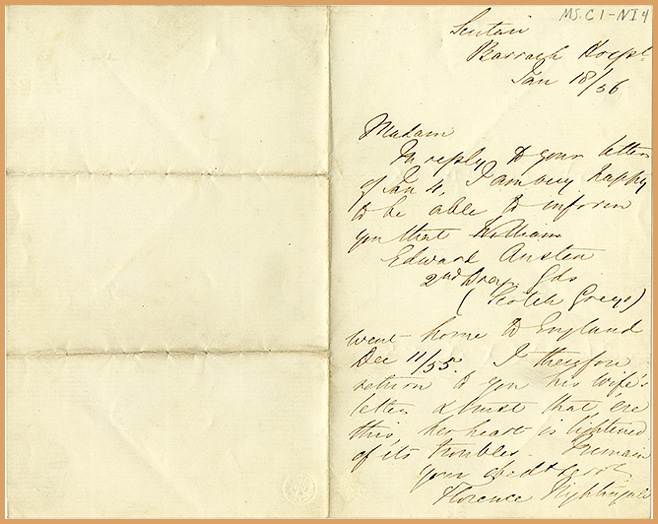 MS. C 1-NI 4
Scutari
Barrack Hospl
Jan 18/56
Madam
In reply to your letter
of Jan 4, I am very happy
to be able to inform
you that William
Edward Austen
2nd Drag. Gds
(Scotch Greys)
went home to England
Dec 11/55. I therefore
return to you his wife's
letter & trust that, ere
this, her heart is lightened
of its troubles. I remain
your obedt servt
Florence Nightingale